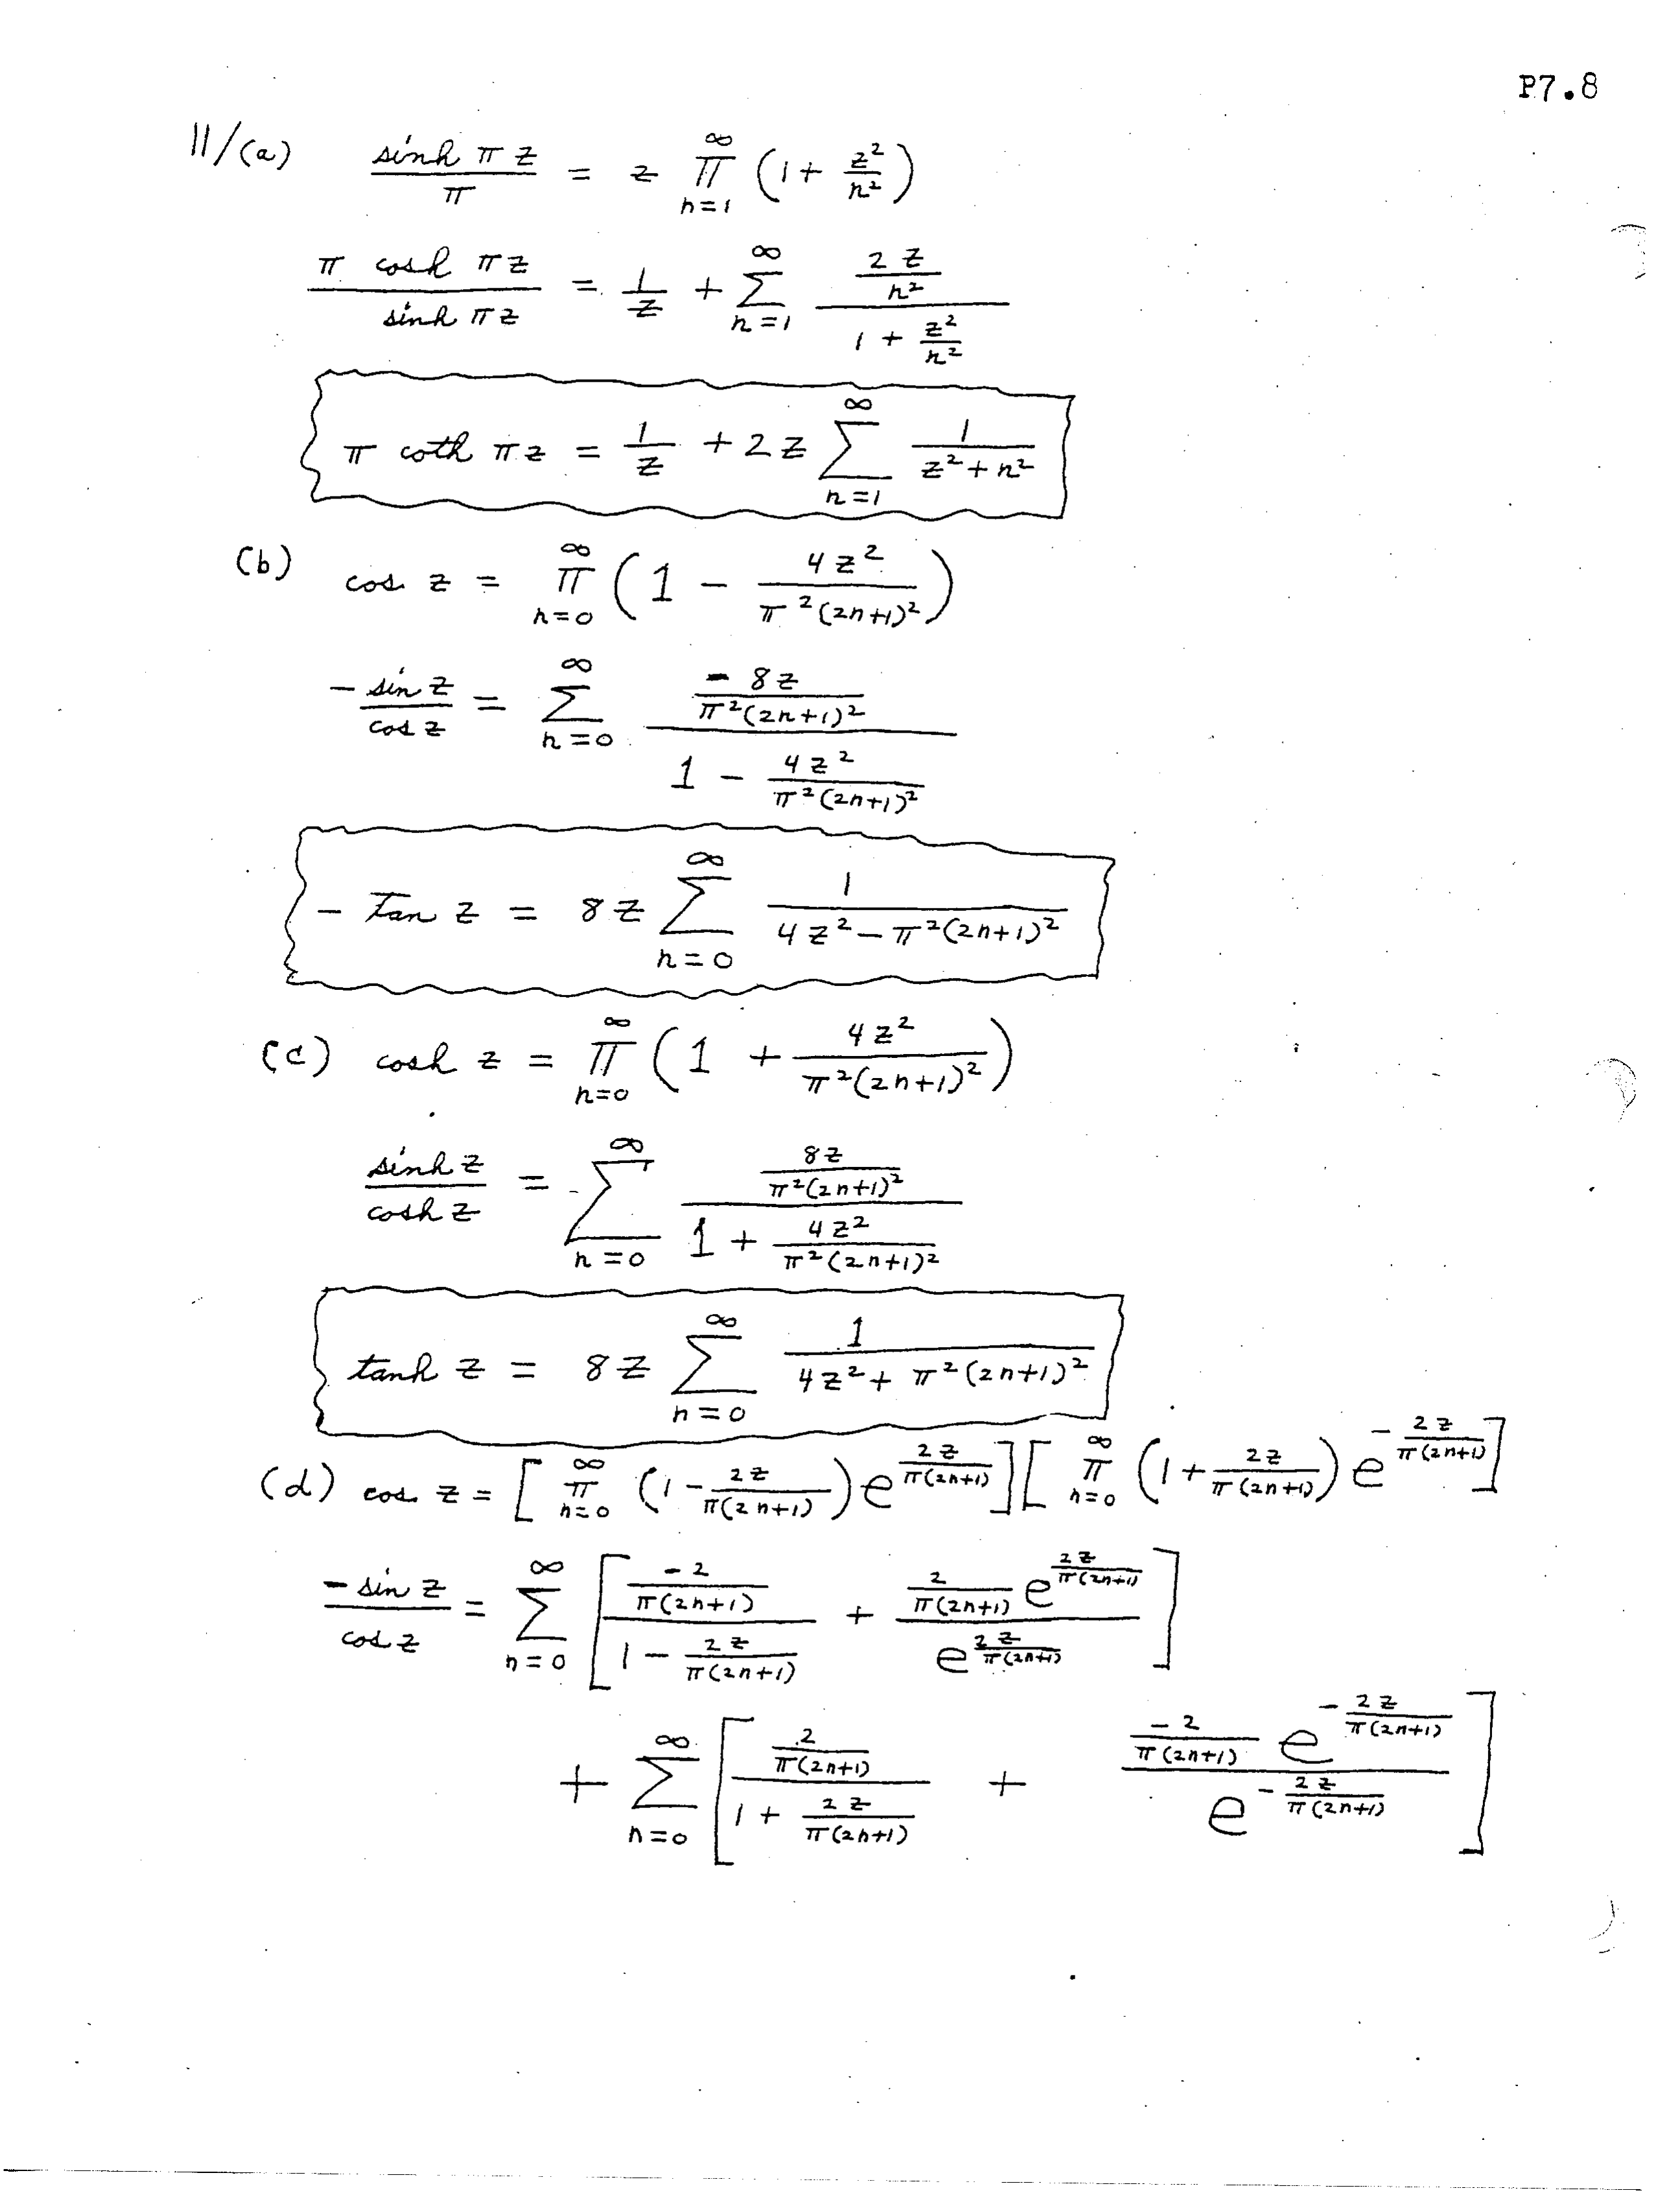 P7.8
11/(a) $\frac{\sinh \pi z}{\pi} = z \prod_{n=1}^{\infty} \left(1 + \frac{z^2}{n^2}\right)$
$\frac{\pi \cosh \pi z}{\sinh \pi z} = \frac{1}{z} + \sum_{n=1}^{\infty} \frac{\frac{2z}{n^2}}{1 + \frac{z^2}{n^2}}$
$\pi \coth \pi z = \frac{1}{z} + 2z \sum_{n=1}^{\infty} \frac{1}{z^2 + n^2}$
(b) $\cos z = \prod_{n=0}^{\infty} \left(1 - \frac{4z^2}{\pi^2(2n+1)^2}\right)$
$\frac{-\sin z}{\cos z} = \sum_{n=0}^{\infty} \frac{\frac{-8z}{\pi^2(2n+1)^2}}{1 - \frac{4z^2}{\pi^2(2n+1)^2}}$
$-\tan z = 8z \sum_{n=0}^{\infty} \frac{1}{4z^2 - \pi^2(2n+1)^2}$
(c) $\cosh z = \prod_{n=0}^{\infty} \left(1 + \frac{4z^2}{\pi^2(2n+1)^2}\right)$
$\frac{\sinh z}{\cosh z} = \sum_{n=0}^{\infty} \frac{\frac{8z}{\pi^2(2n+1)^2}}{1 + \frac{4z^2}{\pi^2(2n+1)^2}}$
$\tanh z = 8z \sum_{n=0}^{\infty} \frac{1}{4z^2 + \pi^2(2n+1)^2}$
(d) $\cos z = \left[\prod_{n=0}^{\infty} \left(1 - \frac{2z}{\pi(2n+1)}\right) e^{\frac{2z}{\pi(2n+1)}}\right] \left[\prod_{n=0}^{\infty} \left(1 + \frac{2z}{\pi(2n+1)}\right) e^{-\frac{2z}{\pi(2n+1)}}\right]$
$\frac{-\sin z}{\cos z} = \sum_{n=0}^{\infty} \left[\frac{\frac{-2}{\pi(2n+1)}}{1 - \frac{2z}{\pi(2n+1)}} + \frac{\frac{2}{\pi(2n+1)} e^{\frac{2z}{\pi(2n+1)}}}{e^{\frac{2z}{\pi(2n+1)}}}\right]$
$+ \sum_{n=0}^{\infty} \left[\frac{\frac{2}{\pi(2n+1)}}{1 + \frac{2z}{\pi(2n+1)}} + \frac{\frac{-2}{\pi(2n+1)} e^{-\frac{2z}{\pi(2n+1)}}}{e^{-\frac{2z}{\pi(2n+1)}}}\right]$